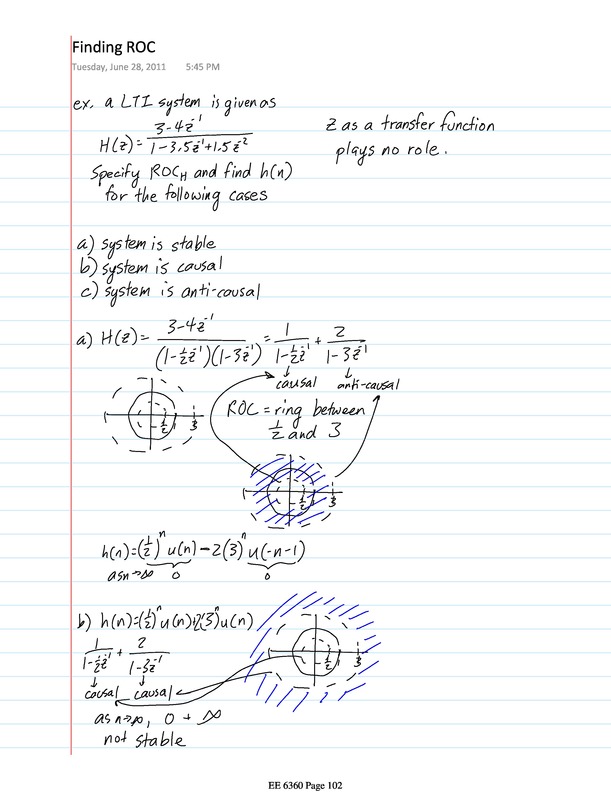 Finding ROC
Tuesday, June 28, 2011 5:45 PM
ex. a LTI system is given as
H(z) = (3-4z⁻¹)/(1-3.5z⁻¹+1.5z⁻²)
Specify ROC_H and find h(n)
for the following cases
z as a transfer function
plays no role.
a) system is stable
b) system is causal
c) system is anti-causal
a) H(z) = (3-4z⁻¹)/((1-½z⁻¹)(1-3z⁻¹)) = 1/(1-½z⁻¹) + 2/(1-3z⁻¹)
↓ causal ↓ anti-causal
½ 1 3
ROC = ring between
½ and 3
½ 1 3
h(n) = (½)ⁿ u(n) - 2(3)ⁿ u(-n-1)
as n→∞ 0 0
b) h(n) = (½)ⁿ u(n) + 2(3)ⁿ u(n)
1/(1-½z⁻¹) + 2/(1-3z⁻¹)
½ 1 3
↓ causal ↓ causal
as n→∞, 0 + ∞
not stable
EE 6360 Page 102